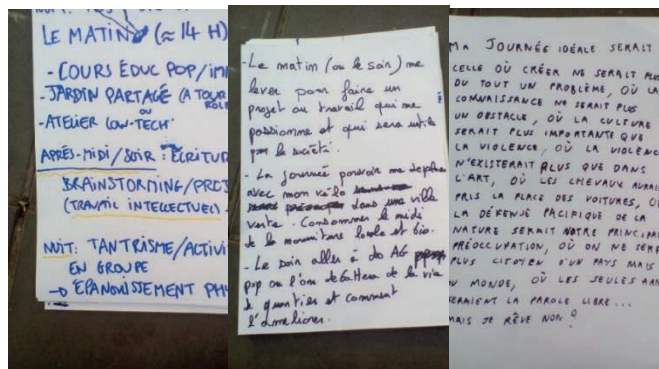 NUIT:
LE MATIN (≈ 14 H)
- COURS ÉDUC POP/
- JARDIN PARTAGÉ (A TOUR
OU
- ATELIER LOW-TECH
APRÈS-MIDI/SOIR: ÉCRITUR
BRAINSTORMING/PROJ
(TRAVAIL INTELLECTUEL)
NUIT: TANTRISME/ACTIVI
EN GROUPE
→ ÉPANOUISSEMENT PHY
- Le matin (ou le soir) me
lever pour faire un
projet ou travail qui me
passionne et qui sera utile
pour la société.
- La journée pouvoir me déplacer
avec mon vélo
dans une ville
verte. Consommer le midi
de la nourriture locale et bio.
- Le soir aller à do AG
pop ou l'on débattera de la vie
de quartier et comment
l'améliorer.
MA JOURNÉE IDÉALE SERAIT
CELLE OÙ CRÉER NE SERAIT PLUS
DU TOUT UN PROBLÈME, OÙ LA
CONNAISSANCE NE SERAIT PLUS
UN OBSTACLE, OÙ LA CULTURE
SERAIT PLUS IMPORTANTE QUE
LA VIOLENCE, OÙ LA VIOLENCE
N'EXISTERAIT PLUS QUE DANS
L'ART, OÙ LES CHEVAUX AURAI
PRIS LA PLACE DES VOITURES, O
LA DÉFENSE PACIFIQUE DE LA
NATURE SERAIT NOTRE PRINCIPA
PRÉOCCUPATION, OÙ ON NE SERA
PLUS CITOYEN D'UN PAYS MAIS
U MONDE, OÙ LES SEULES ARM
SERAIENT LA PAROLE LIBRE...
MAIS JE RÊVE NON?